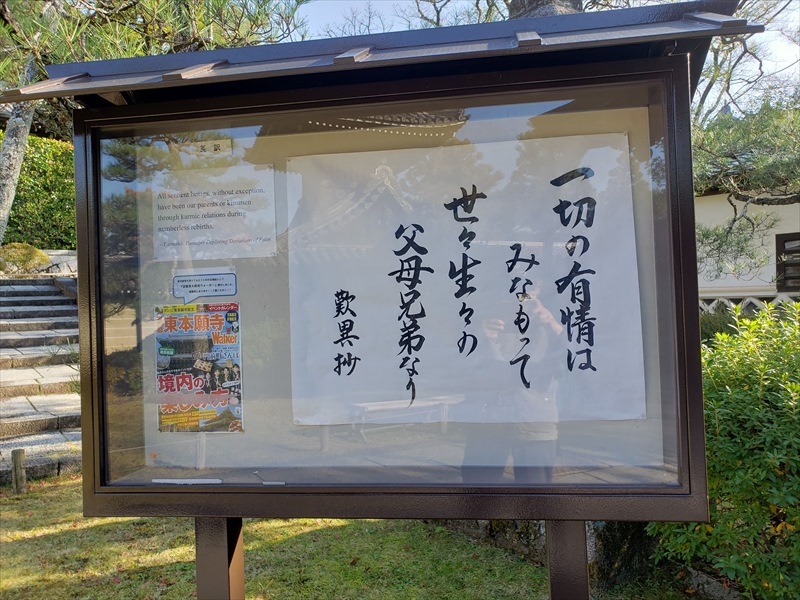 一切の有情は
みなもって
世々生々の
父母兄弟なり
歎異抄
英訳
All sentient beings, without exception,
have been our parents or kinsmen
through karmic relations during
numberless rebirths.
東本願寺
Walker
TAKE FREE
イベントカレンダー
境内の